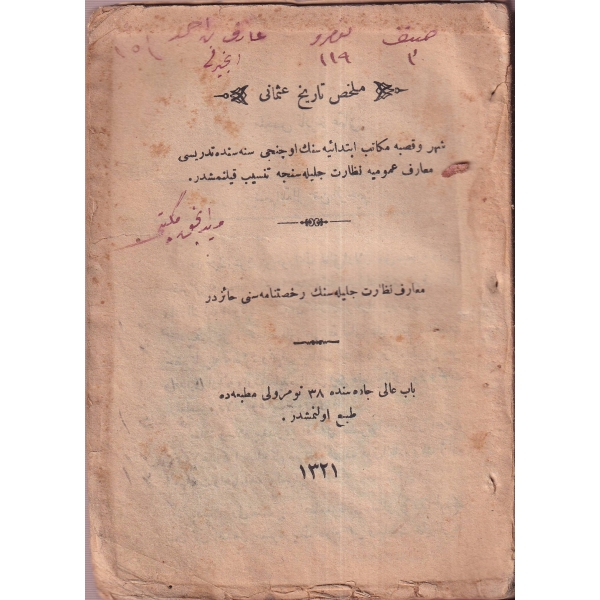 صنف نومرو عارف بن احمد
٣ ١١٩
ملخص تاريخ عثمانى
شهر و قصبه مكاتب ابتدائيه سنك اوچنجى سنه سنده تدريسى
معارف عموميه نظارت جليله سنجه تنسيب قيلنمشدر.
مكتبى
معارف نظارت جليله سنك رخصتنامه سنى حائزدر
باب عالى جاده سنده ٣٨ نومرولى مطبعه ده
طبع اولنمشدر.
١٣٢١